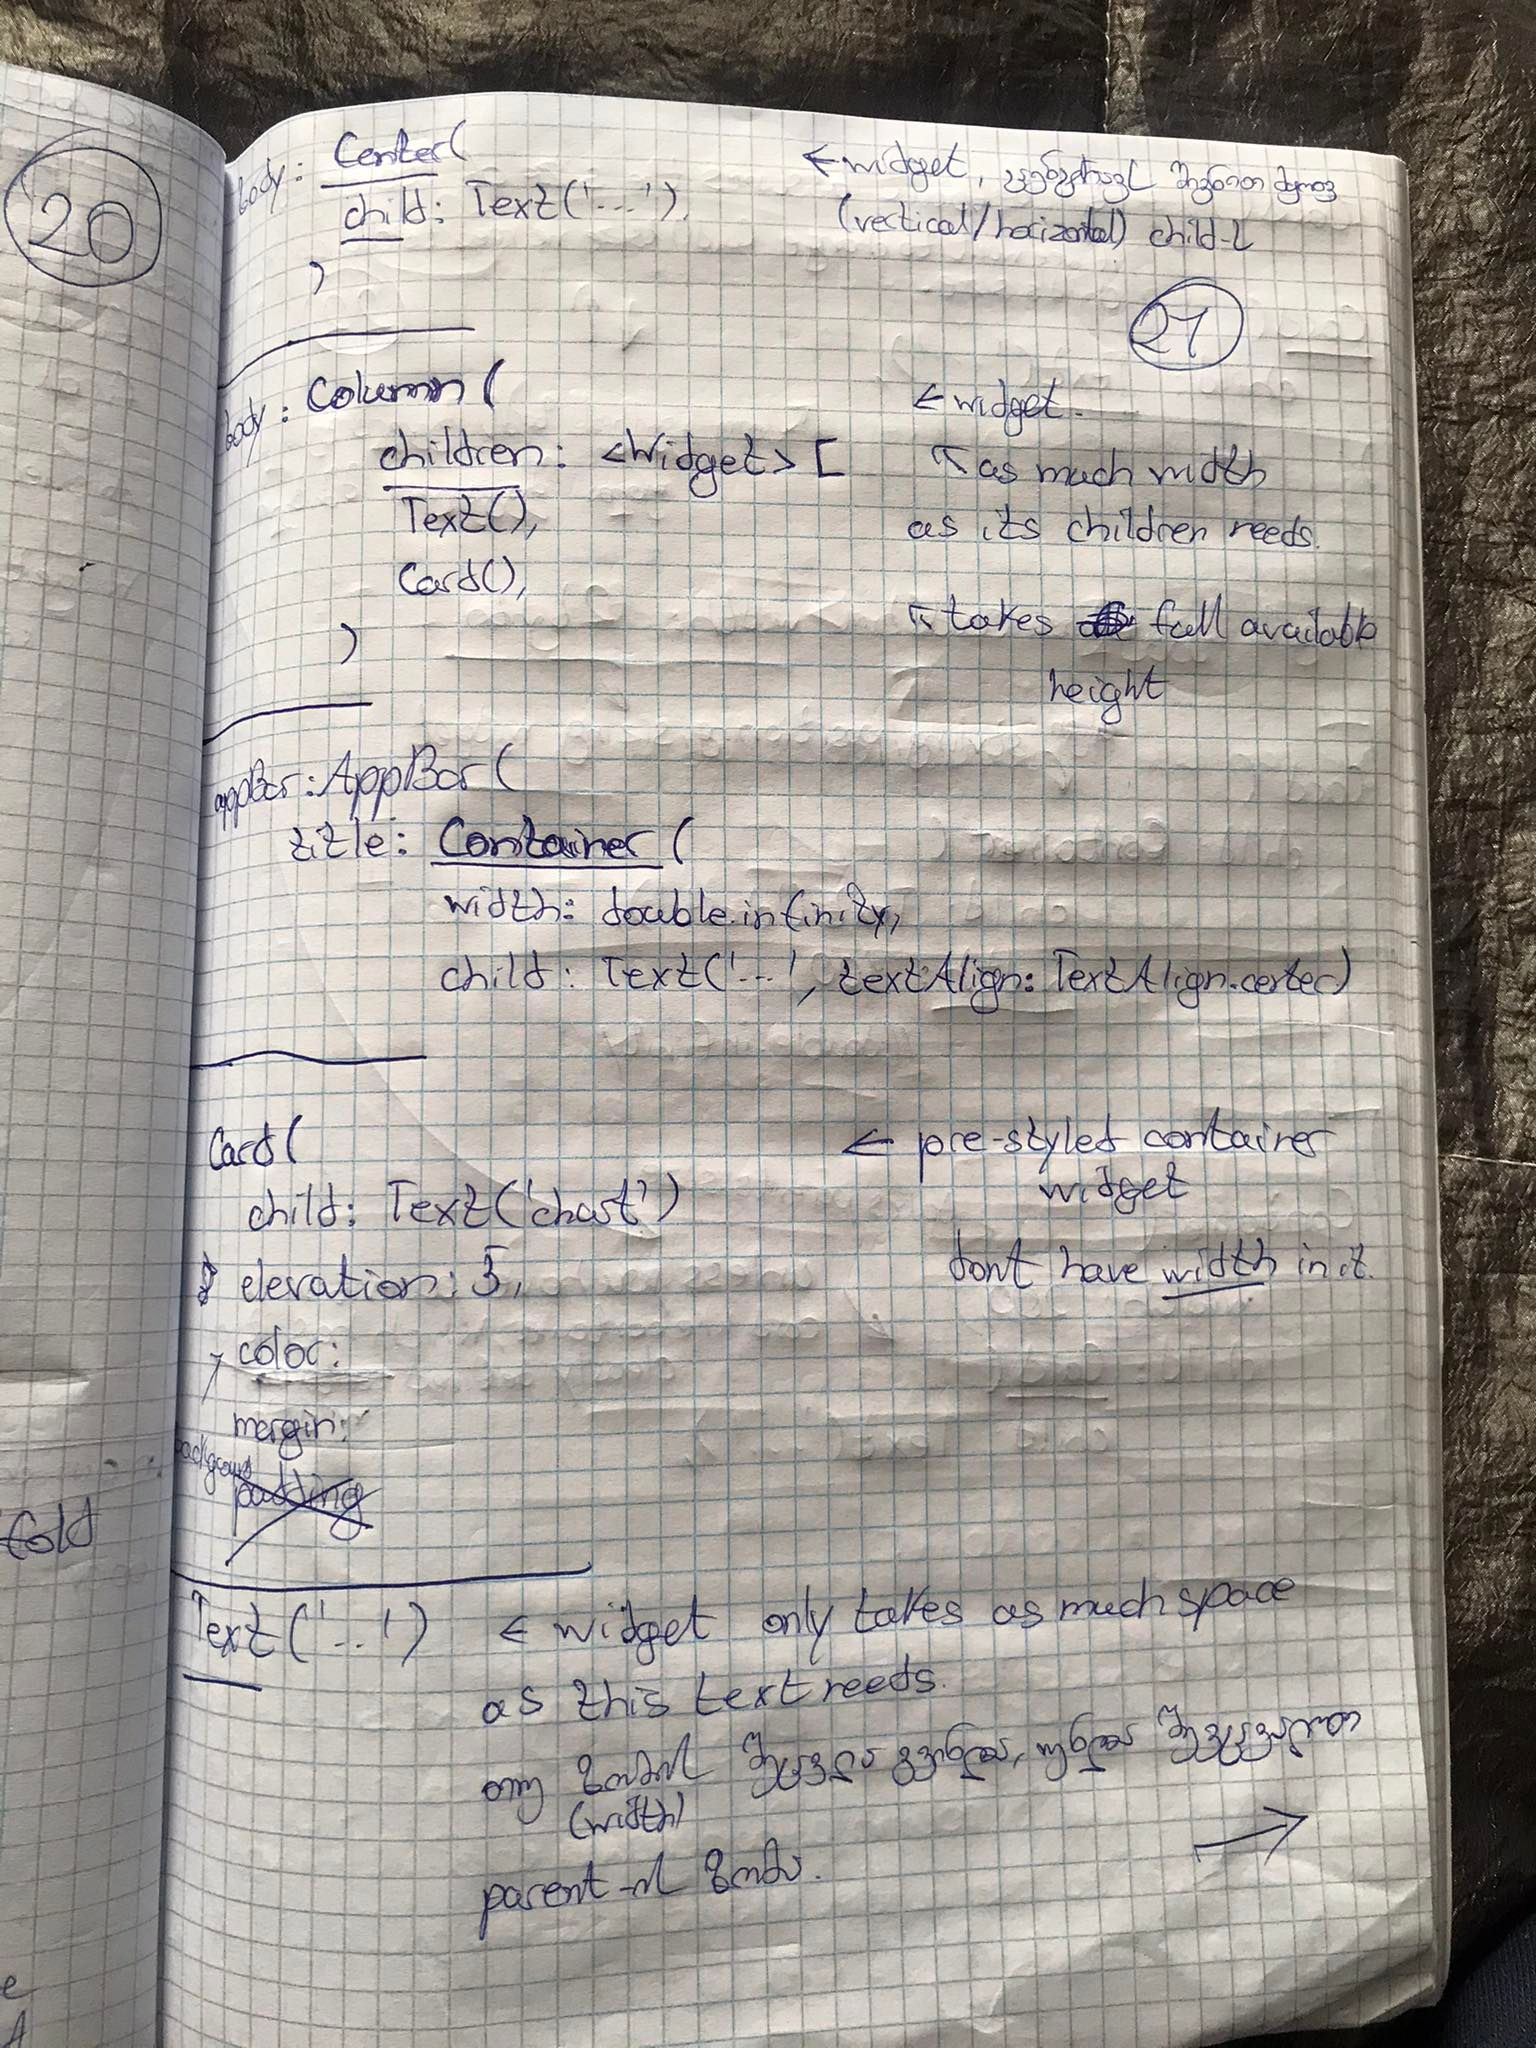 20
body: Center(
child: Text('...'),
)
← widget,
(vertical/horizontal) child-ს
21
body: Column (
children: <Widget> [
Text(),
Card(),
)
← widget.
↖ as much width
as its children needs.
↖ takes full available
height
appBar: AppBar (
title: Container (
width: double.infinity,
child: Text('...', textAlign: TextAlign.center)
Card(
child: Text('chart')
elevation: 5,
color:
margin:
background
padding
← pre-styled container
widget
dont have width in it.
Text('...') ← widget only takes as much space
as this text needs.
თუ ზომის შეცვლა გვინდა, უნდა შევცვალოთ
(width)
parent-ის ზომა.
→
fold
e